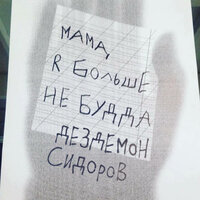 МАМА,
Я БОЛЬШЕ
НЕ БУДДА
ДЕЗДЕМОН
СИДОРОВ